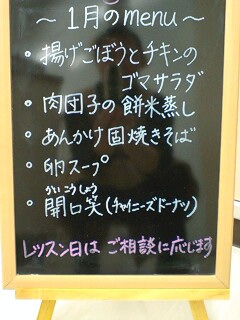 ～1月のmenu～
・揚げごぼうとチキンの
ゴマサラダ
・肉団子の餅米蒸し
・あんかけ固焼きそば
・卵スープ
かいこうしょう
・開口笑(チャイニーズドーナツ)
レッスン日は ご相談に応じます